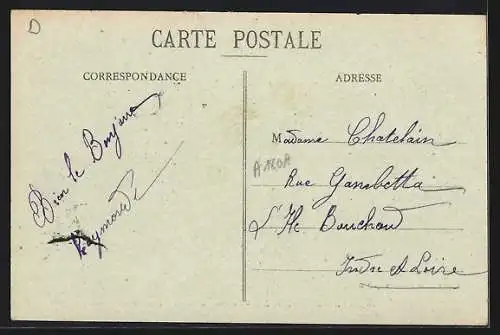 D
CARTE POSTALE
CORRESPONDANCE
ADRESSE
Bien le Bonjour
Raymonde
Madame Chatelain
A180A
Rue Gambetta
L'Ile Bouchard
Indre et Loire